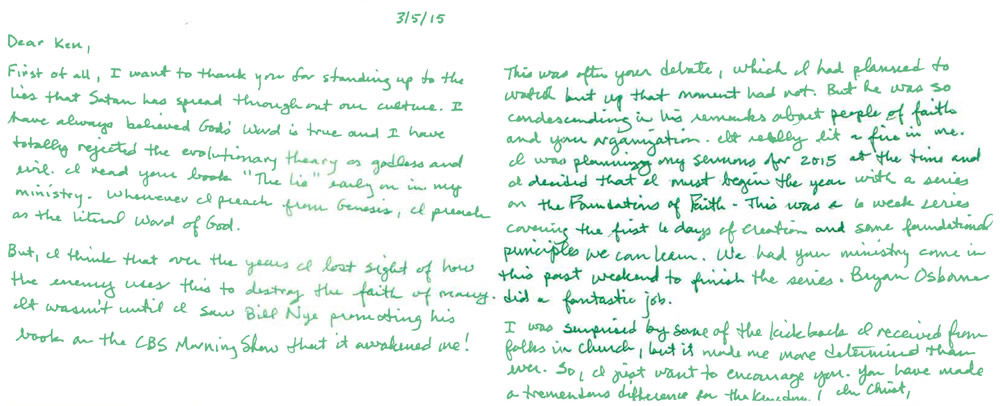 3/5/15
Dear Ken,
First of all, I want to thank you for standing up to the
lies that Satan has spread throughout our culture. I
have always believed God's Word is true and I have
totally rejected the evolutionary theory as godless and
evil. I read your book "The Lie" early on in my
ministry. Whenever I preach from Genesis, I preach
as the literal Word of God.
But, I think that over the years I lost sight of how
the enemy uses this to destroy the faith of many.
It wasn't until I saw Bill Nye promoting his
book on the CBS Morning Show that it awakened me!
This was after your debate, which I had planned to
watch but up that moment had not. But he was so
condescending in his remarks about people of faith
and your organization. It really lit a fire in me.
I was planning my sermons for 2015 at the time and
I decided that I must begin the year with a series
on the Foundations of Faith. This was a 6 week series
covering the first 6 days of creation and some foundational
principles we can learn. We had your ministry come in
this past weekend to finish the series. Bryan Osborne
did a fantastic job.
I was surprised by some of the kickback I received from
folks in church, but it made me more determined than
ever. So, I just want to encourage you. You have made
a tremendous difference for the Kingdom! In Christ,